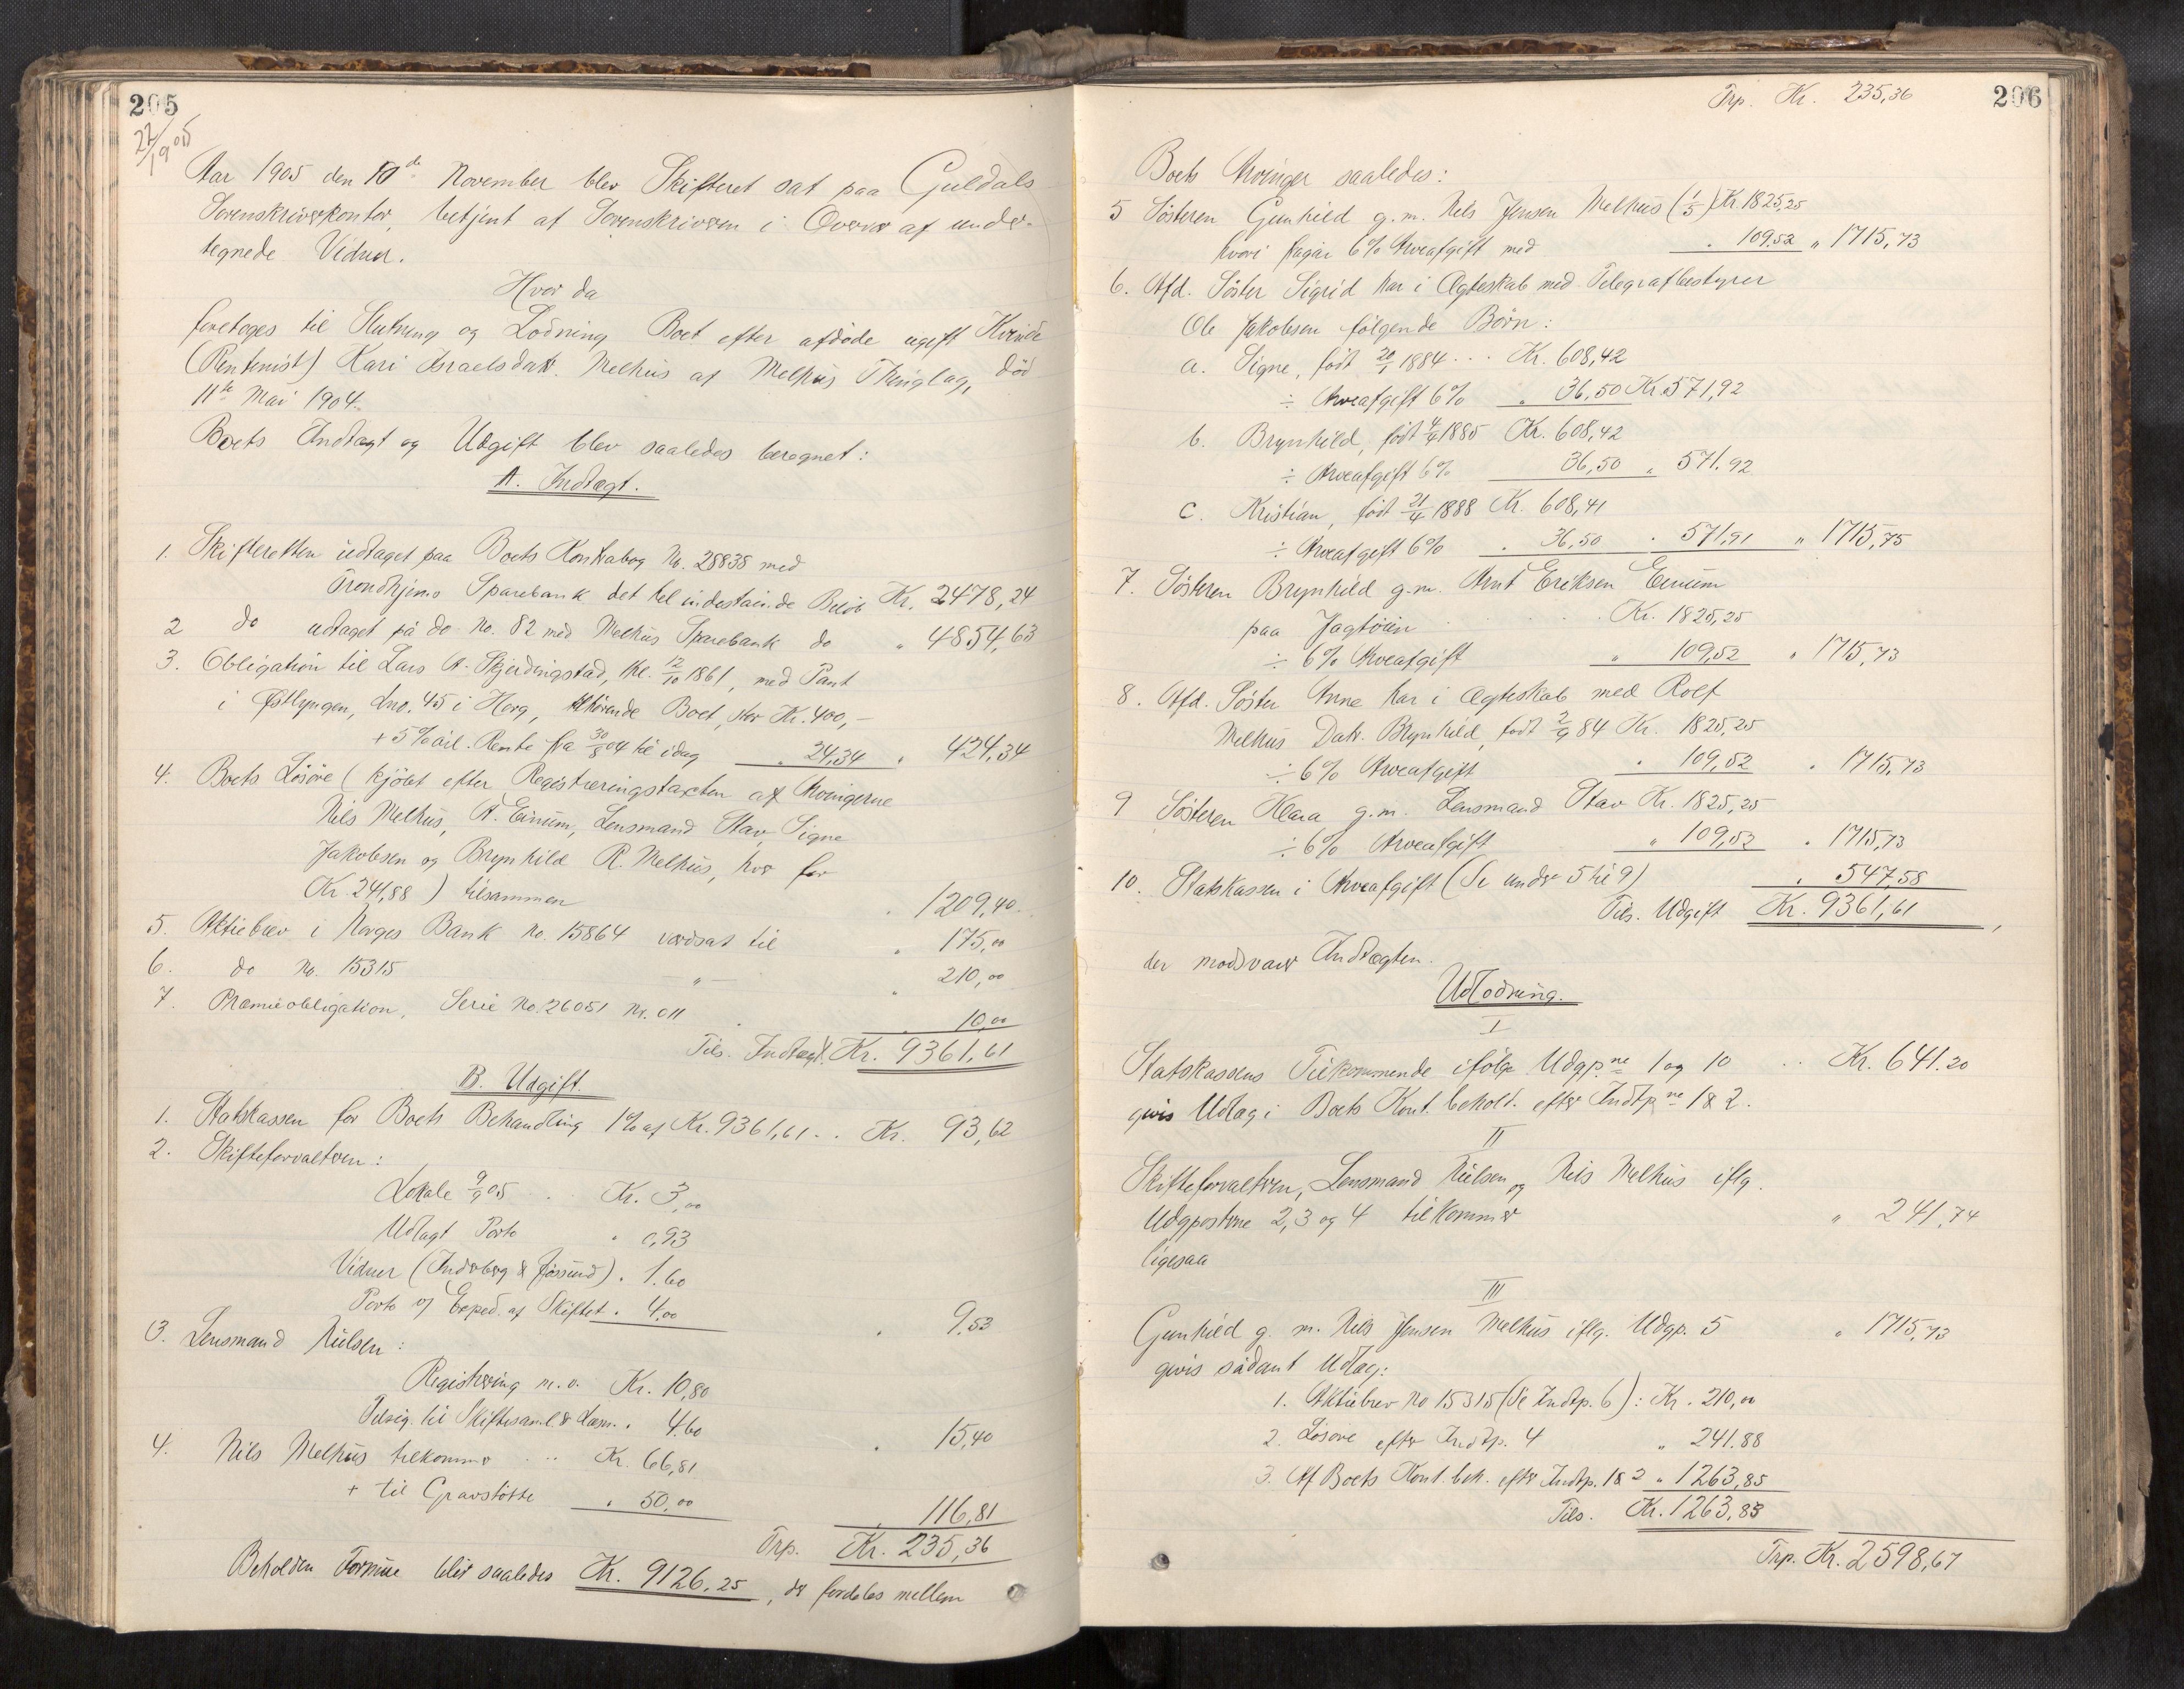 205
27/19 05
Aar 1905 den 10de November blev Skifteret sat paa Guldals
Sorenskriverkontor, betjent af Sorenskriveren i Overvær af under-
tegnede Vidner.
Hvor da
foretoges til Slutning og Lodning Boet efter afdøde ugift Kvinde
(Rentenist) Kari Israelsdatr. Melhus af Melhus Thinglag, død
11te Mai 1904.
Boets Indtægt og Udgift blev saaledes beregnet:
A. Indtægt.
1. Skifteretten udtaget paa Boets Kontrabog No. 28838 med
Trondhjems Sparebank det hel indestaaende Beløb Kr. 2478,24
2 do udtaget på do No. 82 med Melhus Sparebank do " 4854,63
3. Obligation til Lars A. Skjerdingstad, thl. 12/10 1861, med Pant
i Østlyngen, Lno. 45 i Horg, tilhørende Boet, stor Kr. 400,-
+ 5% aarl. Rente fra 30/8 04 til idag " 24,34 " 424,34
4. Boets Løsøre (kjøbt efter Registreringstaxten af Arvingerne
Nils Melhus, A. Einum, Lensmand Stav, Signe
Jakobsen og Brynhild R. Melhus, hver for
Kr. 241,88) tilsammen " 1209,40
5. Aktiebrev i Norges Bank No. 15864 værdsat til " 175,00
6. do No. 15315 " " 210,00
7. Præmieobligation, Serie No. 26051 Nr. 011 " 10,00
Tils. Indtægt. Kr. 9361,61
B. Udgift.
1. Statskassen for Boets Behandling 1% af Kr. 9361,61 .. Kr. 93,62
2. Skifteforvalteren:
Lokale 9/9 05 .. Kr. 3,00
Udlagt Porto " 0,93
Vidner (Inderberg & Jøssund) " 1.60
Porto og Exped. af Skiftet " 4,00 " 9,53
3. Lensmand Nielsen:
Registrering m.v. Kr. 10,80
Tilsig. til Skiftesaml. & Læsn. " 4.60 " 15,40
4. Nils Melhus tilkommer .. Kr. 66,81
+ til Gravstøtte " 50,00 " 116,81
Trp. Kr. 235,36
Beholden Formue blir saaledes Kr. 9126,25, der fordeles mellem
206
Trp. Kr. 235,36
Boets Arvinger saaledes:
5 Søsteren Gunhild g.m. Nils Jensen Melhus (1/5) Kr. 1825,25
hvori fragår 6% Arveafgift med " 109,52 " 1715,73
6. Afd. Søster Sigrid har i Ægteskab med Telegrafbestyrer
Ole Jakobsen følgende Børn:
a. Signe, født 20/1 1884 ... Kr. 608,42
÷ Arveafgift 6% " 36,50 Kr. 571,92
b. Brynhild, født 4/4 1885 Kr. 608,42
÷ Arveafgift 6% 36,50 " 571.92
c. Kristian, født 21/4 1888 Kr. 608,41
÷ Arveafgift 6% " 36,50 " 571,91 " 1715,75
7. Søsteren Brynhild g.m. Arnt Eriksen Einum
paa Jagtøien . . . . . Kr. 1825,25
÷ 6% Arveafgift " 109,52 " 1715,73
8. Afd. Søster Anne har i Ægteskab med Rolf
Melhus Datr. Brynhild, født 2/9 84 Kr. 1825,25
÷ 6% Arveafgift " 109,52 " 1715,73
9 Søsteren Klara g.m. Lensmand Stav Kr. 1825,25
÷ 6% Arveafgift " 109,52 " 1715,73
10. Statskassen i Arveafgift (Se under 5 til 9) " 547,58
Tils. Udgift Kr. 9361,61,
der modsvarer Indtægten.
Udlodning.
I
Statskassens Tilkommende ifølge Udgp.ne 1 og 10 .. Kr. 641.20
gives Udlag i Boets Kont. behold. efter Indtp.ne 1 & 2.
II
Skifteforvalteren, Lensmand Nielsen og Nils Melhus iflg.
Udgpostene 2, 3 og 4 tilkommer " 241,74
ligesaa
III
Gunhild g. m. Nils Jensen Melhus iflg. Udgp. 5 " 1715,73
gives sådant Udlæg:
1. Aktiebrev No 15315 (Se Indtp. 6): Kr. 210,00
2. Løsøre efter Indtp. 4 " 241.88
3. Af Boets Kont. beh. efter Indtp. 1 & 2 " 1263,85
Tils. Kr. 1263,85
Trp. Kr. 2598,67